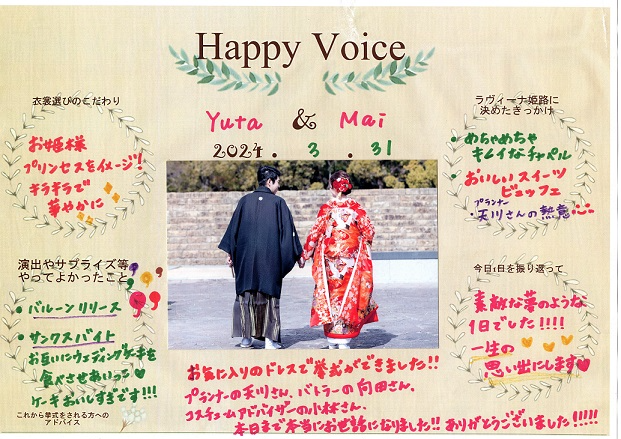 Happy Voice
衣裳選びのこだわり
お姫様
プリンセスをイメージ!
キラキラで
華やかに
Yuta & Mai
2024. 3. 31
ラヴィーナ姫路に
決めたきっかけ
・めちゃめちゃ
キレイなチャペル
・おいしいスイーツ
ビュッフェ
プランナー
・天川さんの熱意
演出やサプライズ等
やってよかったこと
・バルーンリリース
・サンクスバイト
お互いにウェディングケーキを
食べさせあいっこ♡
ケーキおいしすぎです!!!
今日1日を振り返って
素敵な夢のような
1日でした!!!!
一生の
思い出にします♥
お気に入りのドレスで挙式ができました!!
プランナーの天川さん、バトラーの向田さん、
コスチュームアドバイザーの小林さん、
本日まで本当にお世話になりました!! ありがとうございました!!!!!
これから挙式をされる方への
アドバイス